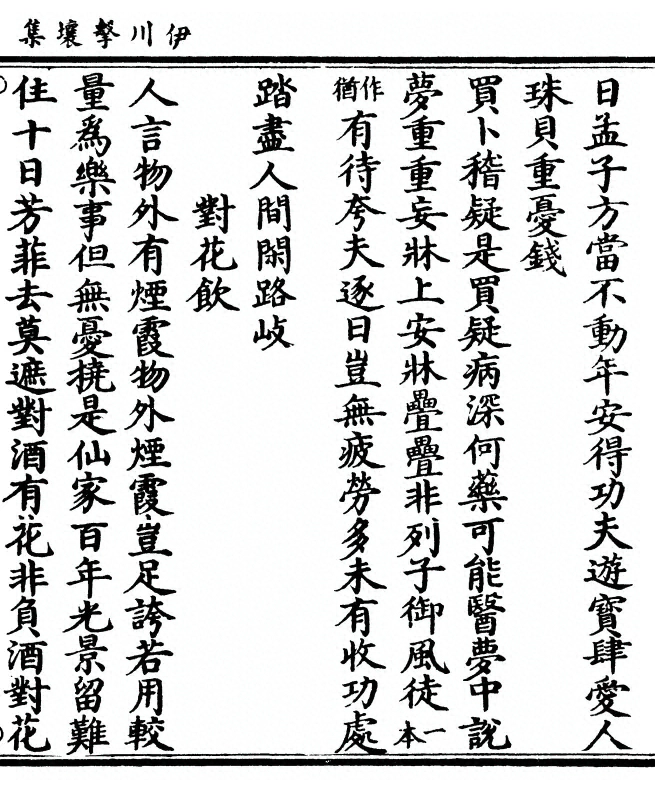 伊川擊壤集
日孟子方當不動年安得功夫遊寶肆愛人
珠貝重憂錢
買卜稽疑是買疑病深何藥可能醫夢中說
夢重重妄牀上安牀疊疊非列子御風徒一本
作猶有待夸夫逐日豈無疲勞多未有收功處
踏盡人間閑路岐
對花飲
人言物外有煙霞物外煙霞豈足誇若用較
量爲樂事但無憂撓是仙家百年光景留難
住十日芳菲去莫遮對酒有花非負酒對花